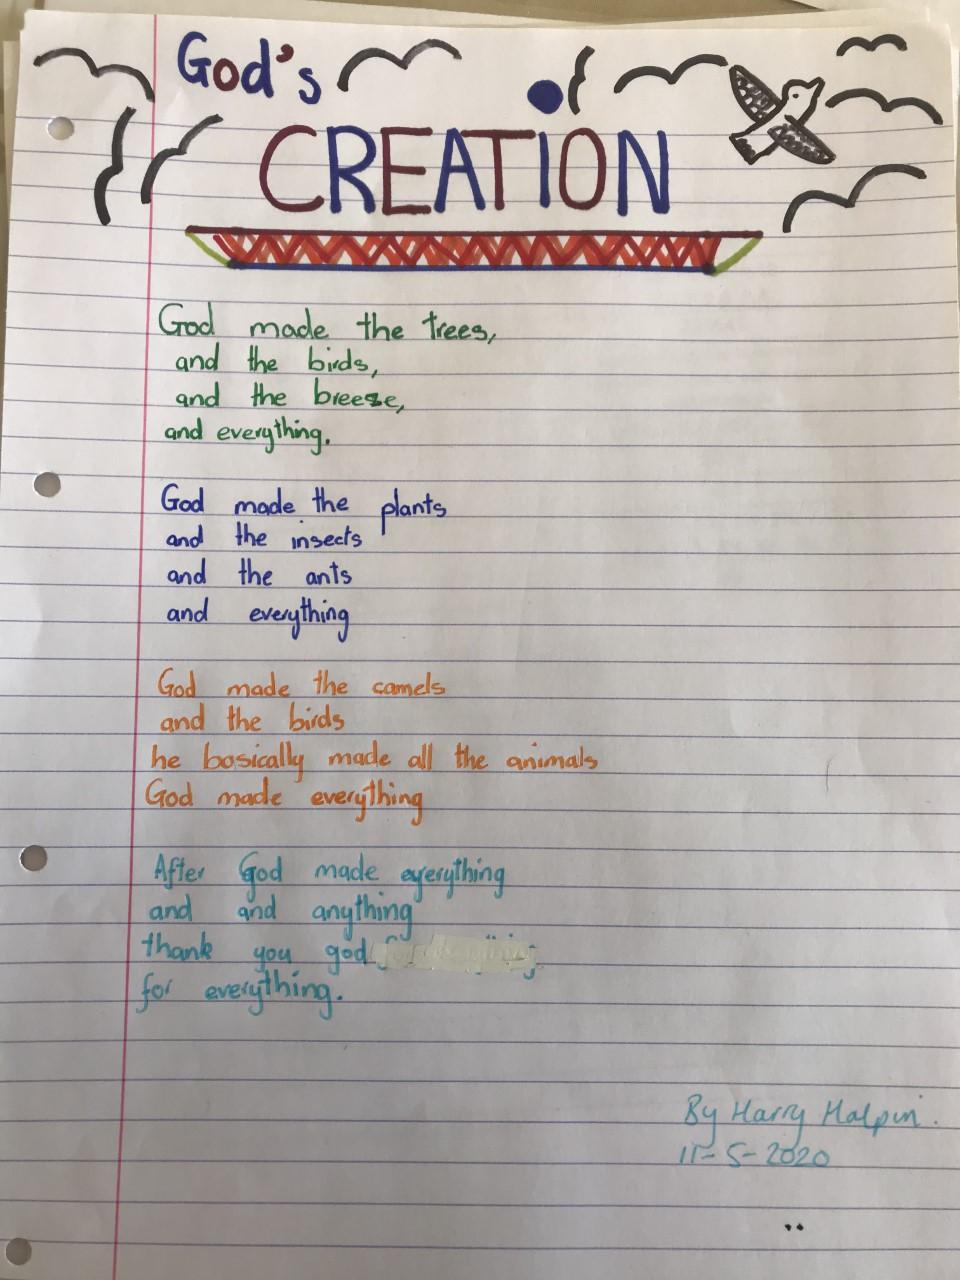 God's
CREATION
God made the trees,
and the birds,
and the breeze,
and everything.
God made the plants
and the insects
and the ants
and everything
God made the camels
and the birds
he basically made all the animals
God made everything
After God made everything
and and anything
thank you god
for everything.
By Harry Halpin.
11-5-2020